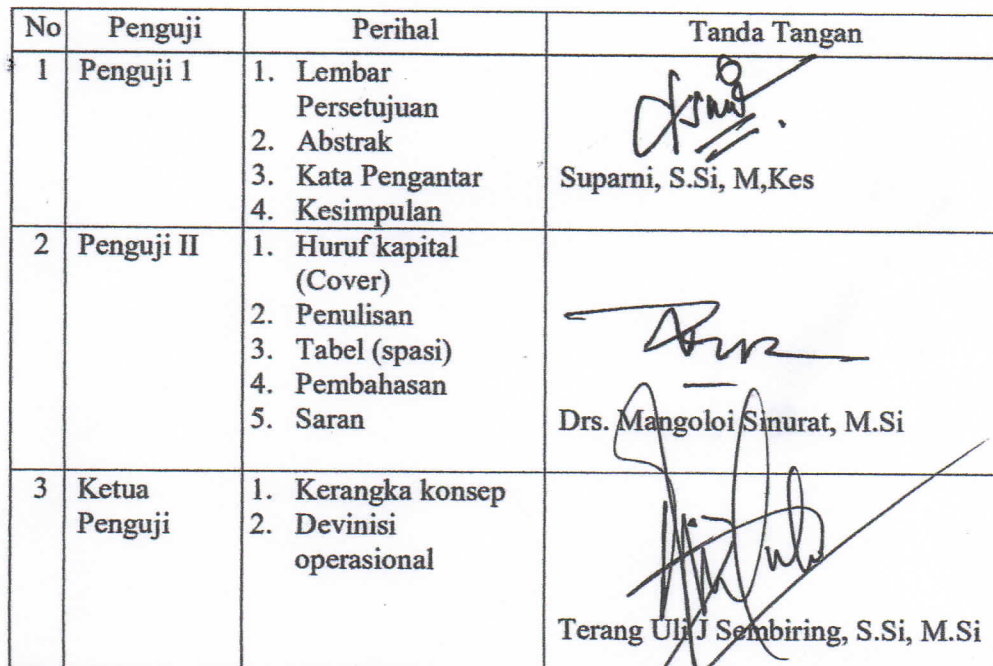 No Penguji Perihal Tanda Tangan
1 Penguji 1 1. Lembar
Persetujuan
2. Abstrak
3. Kata Pengantar
4. Kesimpulan
Suparni, S.Si, M,Kes
2 Penguji II 1. Huruf kapital
(Cover)
2. Penulisan
3. Tabel (spasi)
4. Pembahasan
5. Saran
Drs. Mangoloi Sinurat, M.Si
3 Ketua
Penguji
1. Kerangka konsep
2. Devinisi
operasional
Terang Uli J Sembiring, S.Si, M.Si